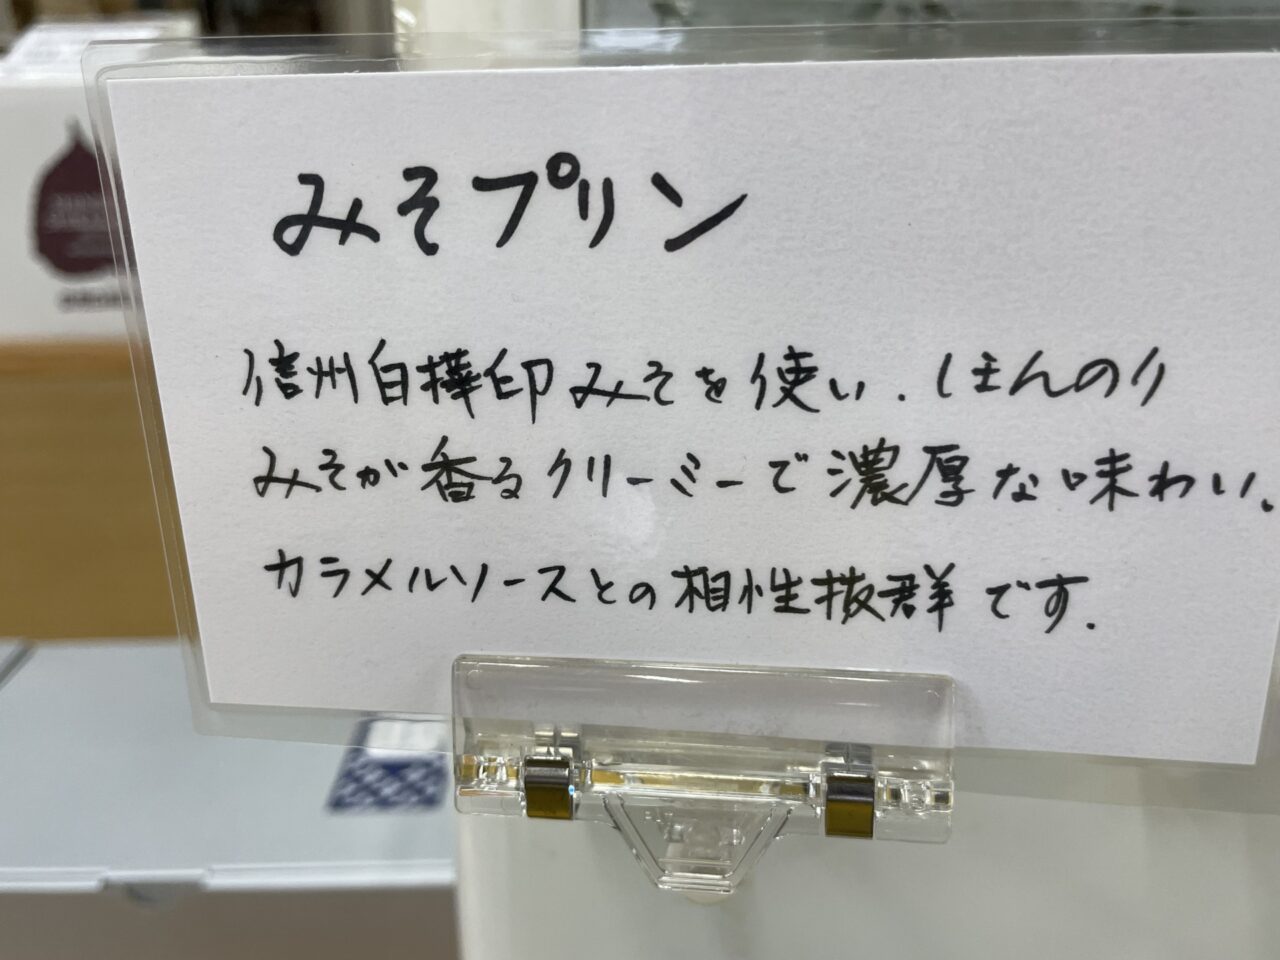 みそプリン
信州白樺印みそを使い、ほんのり
みそが香るクリーミーで濃厚な味わい。
カラメルソースとの相性抜群です。